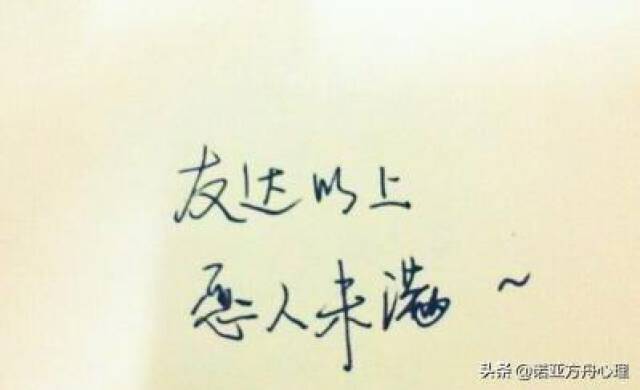 友达以上
恋人未满~
头条 @诺亚方舟心理